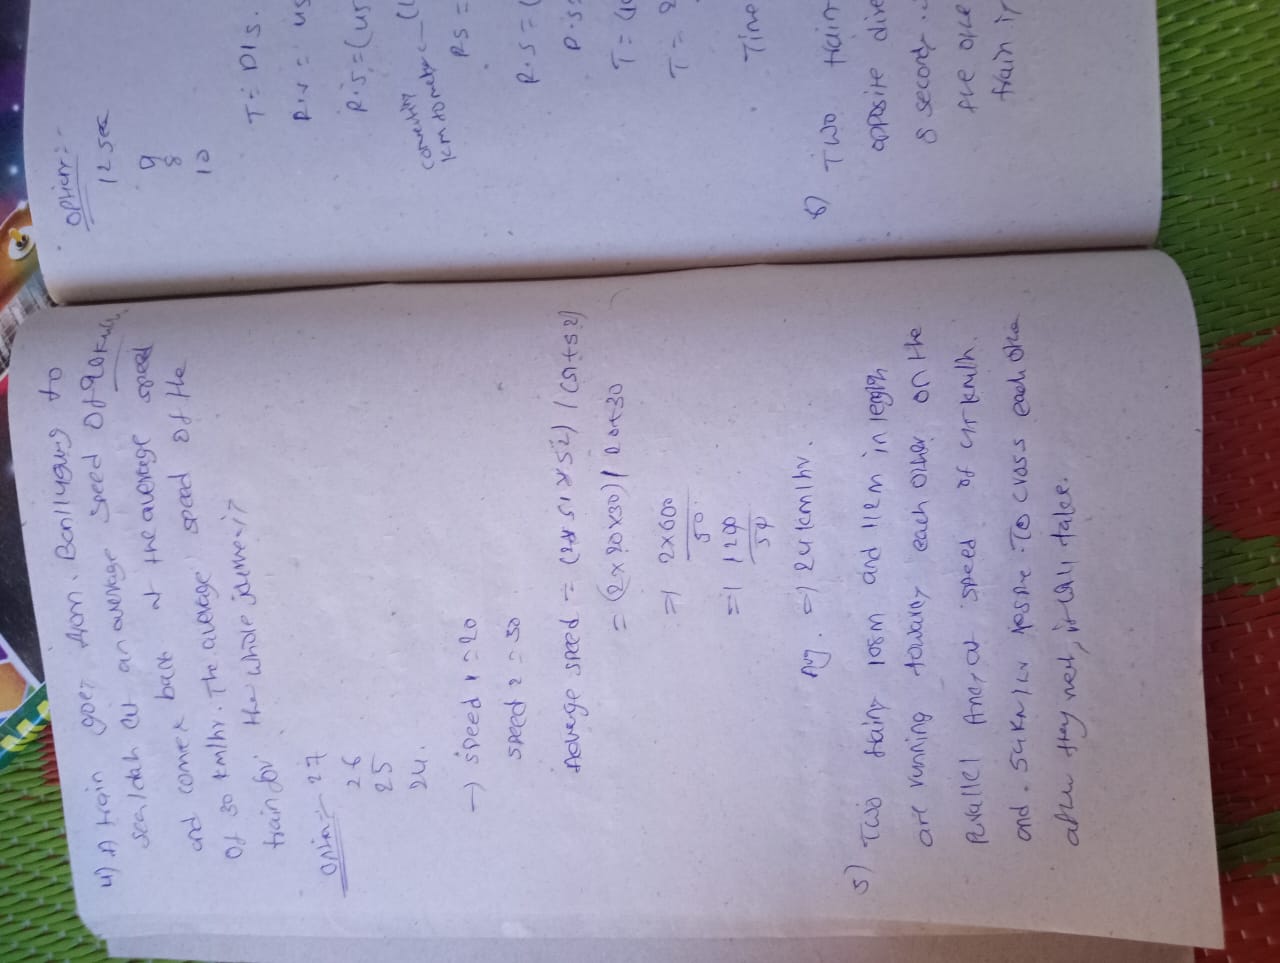 4) A train goes from Ballygung to
sealdah at an average speed of 20 km/hr
and comes back at the average speed
of 30 km/hr. The average speed of the
train for the whole journey is?
Option:- 27
26
25
24.
→ speed 1 = 20
speed 2 = 30
Average speed = (2 x s1 x s2) / (s1+s2)
= (2 x 20 x 30) / 20+30
=> 2x600
50
=> 1200
50
=> 24 km/hr.
5) Two trains 108m and 112m in length
are running towards each other on the
parallel lines at speed of 45 km/h.
and 54 km/hr To cross each other
after they meet, it will take.
Option:-
12 sec
9
8
10
T = D/S.
R.S = (45
converting
km to meter
R.S = (
Time
6) Two train
opposite dire
8 second.
the other
train is